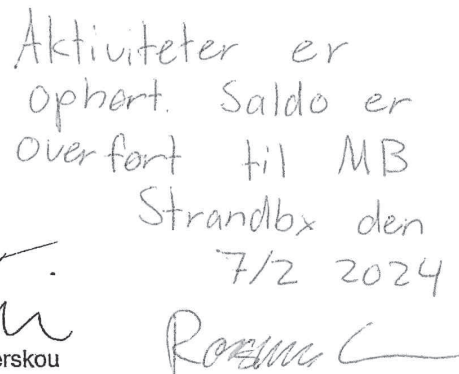 Aktiviteter er
ophørt. Saldo er
overført til MB
Strandbx den
7/2 2024
erskou